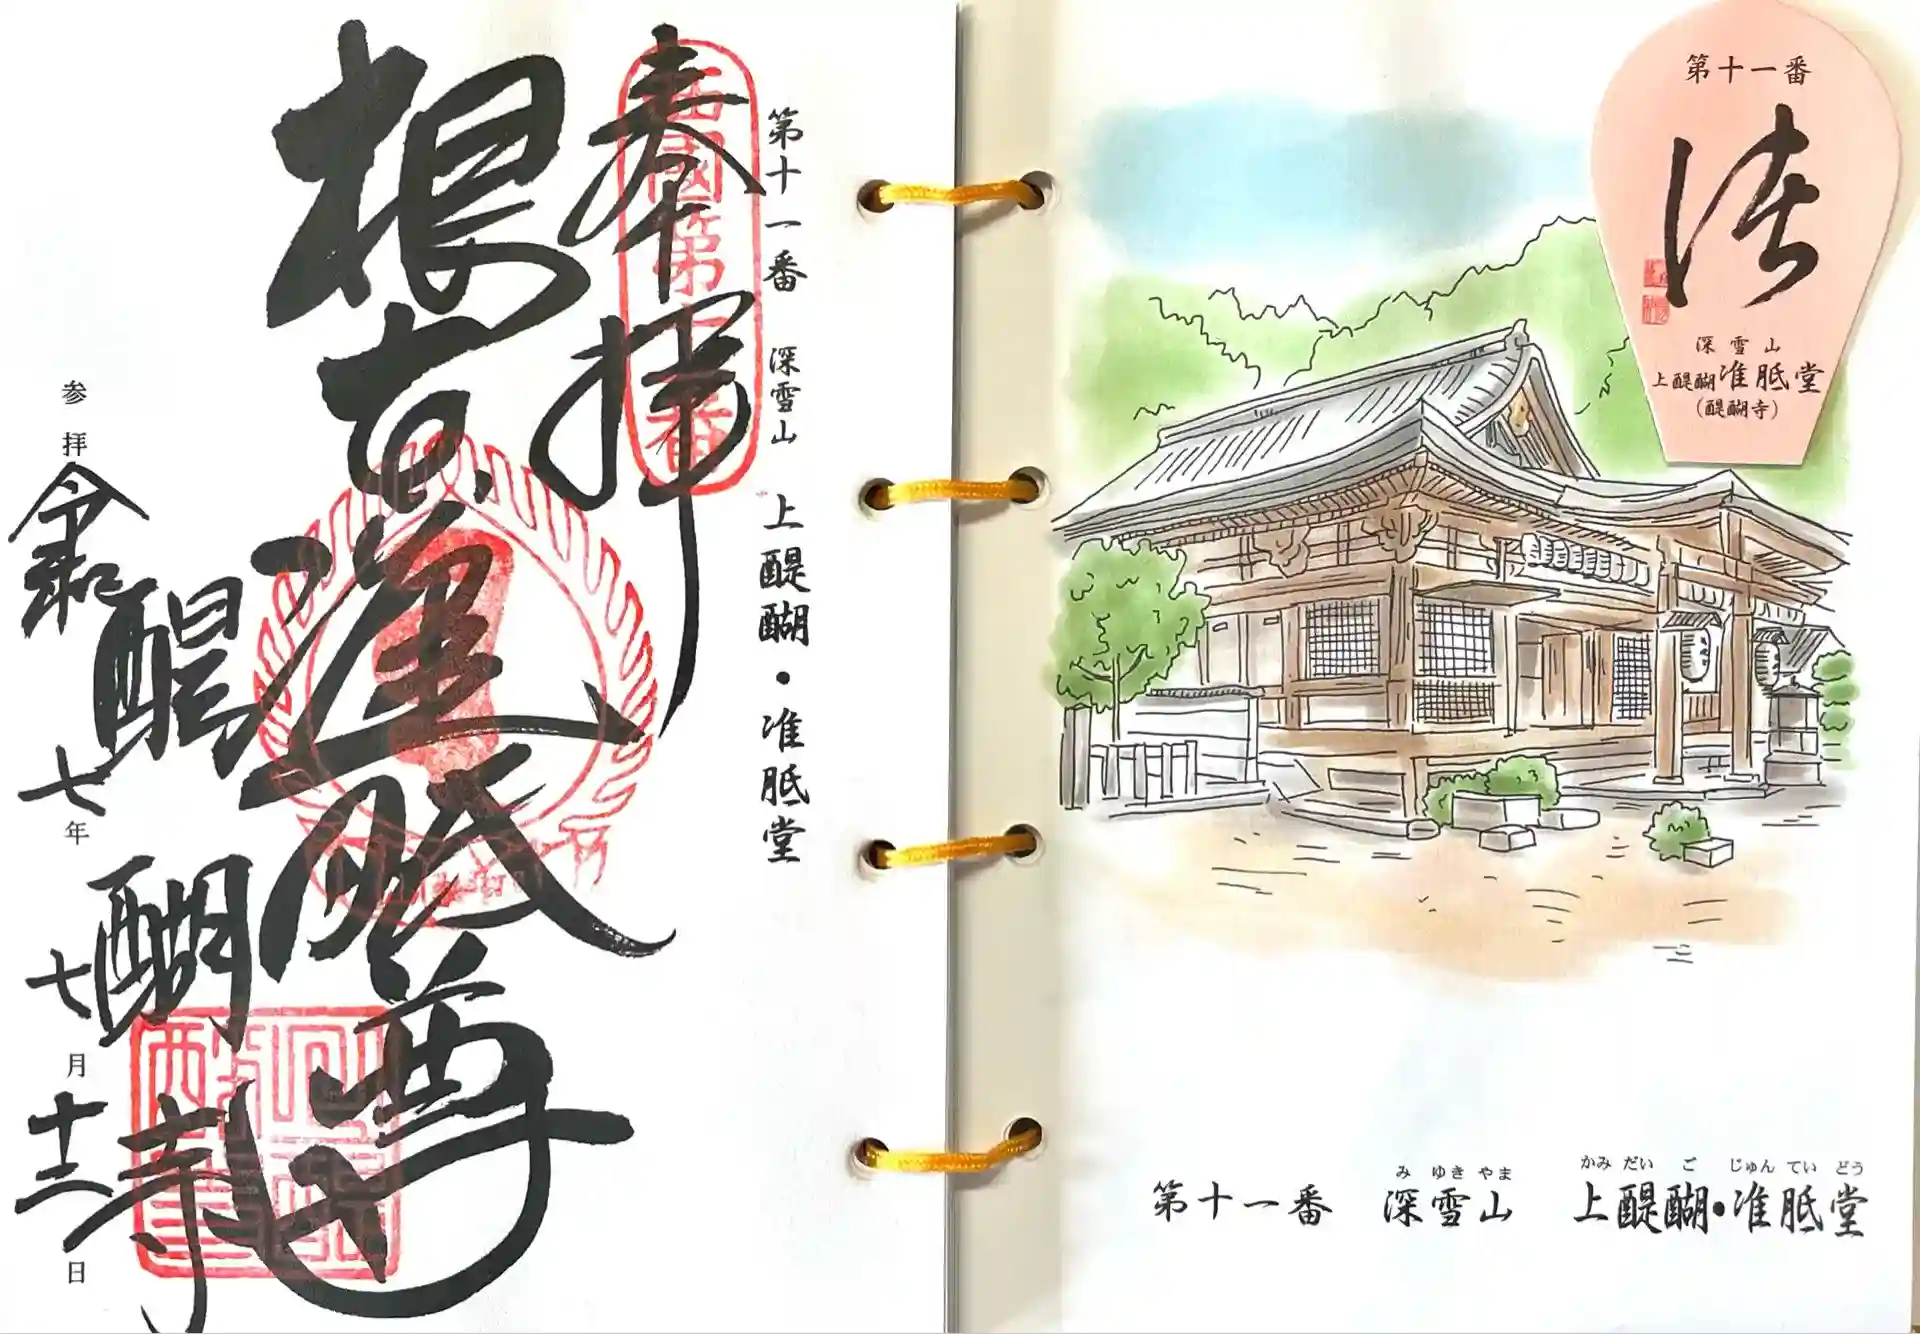 第十一番 深雪山 上醍醐・准胝堂
奉拝
西國第十一番
根本准胝尊
醍醐寺
参拝 令和七年七月十日
第十一番
深雪山
上醍醐准胝堂
(醍醐寺)
み ゆき やま かみ だい ご じゅん てい どう
第十一番 深雪山 上醍醐・准胝堂